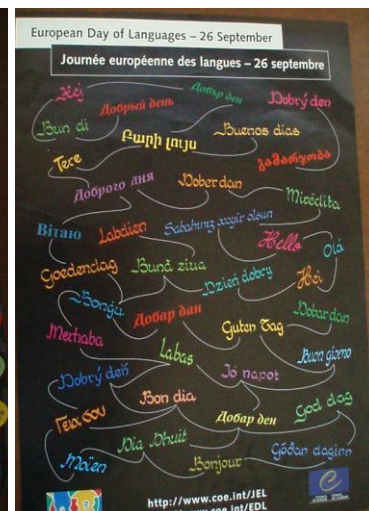 European Day of Languages – 26 September
Journée européenne des langues – 26 septembre
Hej
Добър ден
Dobrý den
Добрый день
Bun di
Բարի լույս
Buenos dias
Tere
გამარჯობა
Доброго дня
Dober dan
Mirëdita
Вітаю
Labdien
Sabahınız xeyir olsun
Hello
Olá
Goedendag
Bună ziua
Dzień dobry
Hei
Bonġu
Добар дан
Guten Tag
Dobar dan
Merhaba
Labas
Buon giorno
Dobrý deň
Jó napot
Bon dia
God dag
Γεια σου
Добар ден
Dia Dhuit
Góðan daginn
Moïen
Bonjour
http://www.coe.int/JEL
www.coe.int/EDL